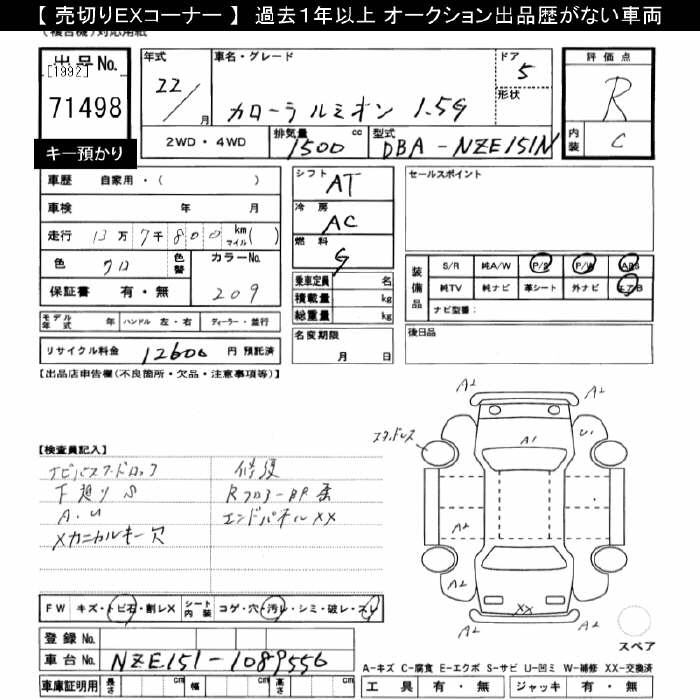 【 売切りEXコーナー 】 過去1年以上 オークション出品歴がない車両
(複合機)対応用紙
出品No.
[1992]
71498
キー預かり
年式 22/ 月
車名・グレード カローラ ルミオン 1.5G
ドア 5
形状
2WD・4WD
排気量 1500 cc
型式 DBA-NZE151N
評価点 R
内装 C
車歴 自家用・( )
車検 年 月
走行 13万7千800 km マイル( )
色 クロ 色替
カラーNo. 209
保証書 有・無
モデル年式 年 ハンドル 左・右 ディーラー・並行
リサイクル料金 12600 円 預託済
シフト AT
冷房 AC
燃料 G
乗車定員 名
積載量 kg
総重量 kg
名変期限 月 日
セールスポイント
装備品
S/R 純A/W P/S P/W ABS
純TV 純ナビ 革シート 外ナビ エアB
ナビ型番:
後日品
【出品店申告欄(不良箇所・欠品・注意事項等)】
【検査員記入】
下廻り S
A.U
メカニカルキー穴
修復
エンドパネルXX
スタッドレス
A2 A2
A1 U1
A2
A2 A2
XX
A2 A2
スペア
FW キズ・トビ石・割レX シート内装 コゲ・穴・汚レ・シミ・破レ・スレ
登録No.
車台No. NZE151-1089556
車庫証明用 長さ cm 幅 cm 高さ cm
A-キズ C-腐食 E-エクボ S-サビ U-凹ミ W-補修 XX-交換済
工具 有・無 ジャッキ 有・無